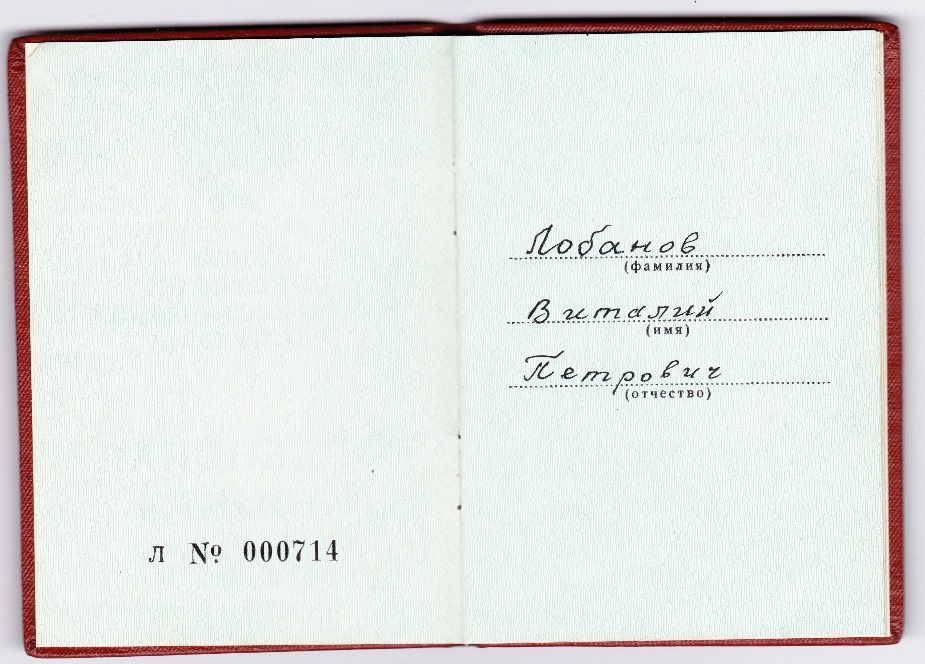 Л № 000714
Лобанов
(фамилия)
Виталий
(имя)
Петрович
(отчество)